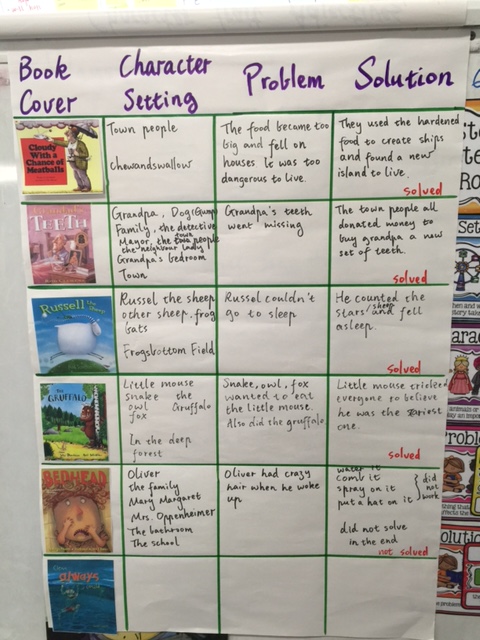 Book Cover
Character Setting
Problem
Solution
Cloudy
With a
Chance of
Meatballs
Town people
Chewandswallow
The food became too
big and fell on
houses It was too
dangerous to live.
They used the hardened
food to create ships
and found a new
island to live.
solved
TEETH
Grandpa, Dog (Gump)
Family, the detective
Mayor, the town people
the neighbour lady
Grandpa's bedroom
Town
Grandpa's teeth
went missing
The town people all
donated money to
buy grandpa a new
set of teeth.
solved
Russell the Sheep
Russel the sheep
other sheep, frog
bats
Frogsbottom Field
Russel couldn't
go to sleep
He counted the
stars sheep and fell
asleep.
solved
THE GRUFFALO
Little mouse
Snake the
owl Gruffalo
fox
In the deep
forest
Snake, owl, fox
wanted to eat
the little mouse.
Also did the gruffalo
Little mouse tricked
everyone to believe
he was the scariest
one.
solved
BEDHEAD
Oliver
the family
Mary Margaret
Mrs. Oppenheimer
The bathroom
The school
Oliver had crazy
hair when he woke
up
water it
comb it
spray on it
put a hat on it
did
not
work
did not solve
in the end
not solved